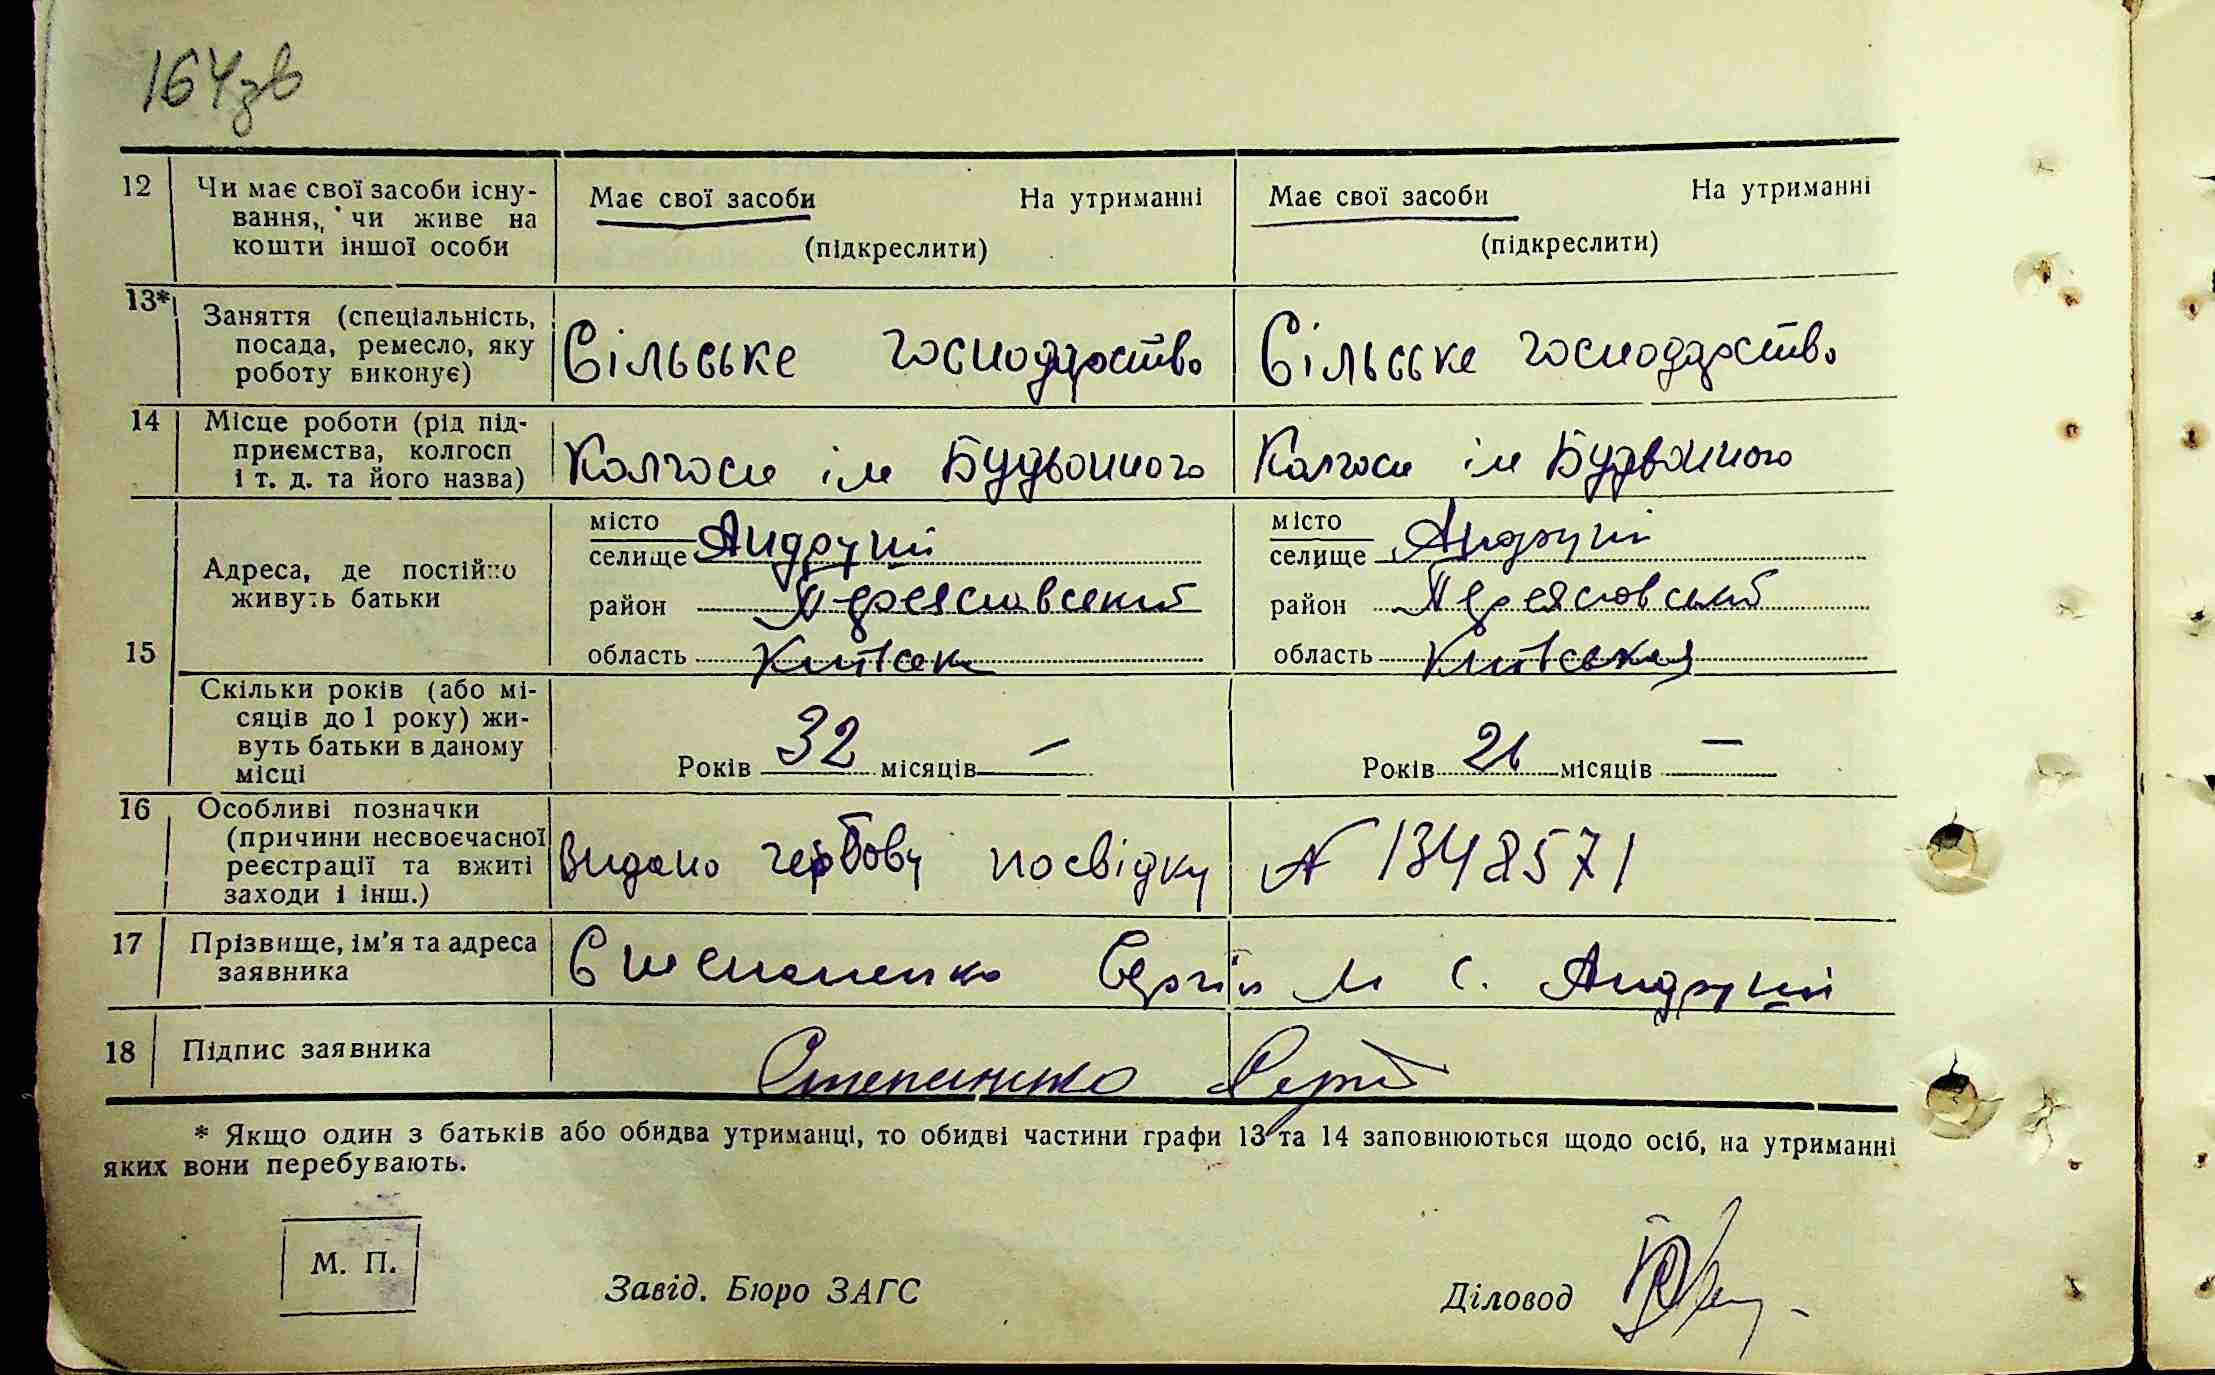 164зв
12 Чи має свої засоби існу- Має свої засоби На утриманні Має свої засоби На утриманні
вання, чи живе на
кошти іншої особи (підкреслити) (підкреслити)
13* Заняття (спеціальність,
посада, ремесло, яку Сільське господарство Сільське господарство
роботу виконує)
14 Місце роботи (рід під-
приємства, колгосп Колгосп ім Будьонного Колгосп ім Будьонного
і т. д. та його назва)
місто місто
селище Андруші селище Андруші
Адреса, де постійно
живуть батьки район Переяславський район Переяславський
15 область Київськ область Київская
Скільки років (або мі-
сяців до 1 року) жи-
вуть батьки в даному
місці Років 32 місяців — Років 21 місяців —
16 Особливі позначки
(причини несвоєчасної
реєстрації та вжиті Видано гербову посвідку № 1348571
заходи і інш.)
17 Прізвище, ім'я та адреса Степаненко Сергій М с. Андруші
заявника
18 Підпис заявника Степаненко Сергій
* Якщо один з батьків або обидва утриманці, то обидві частини графи 13 та 14 заповнюються щодо осіб, на утриманні
яких вони перебувають.
М. П.
Завід. Бюро ЗАГС Діловод